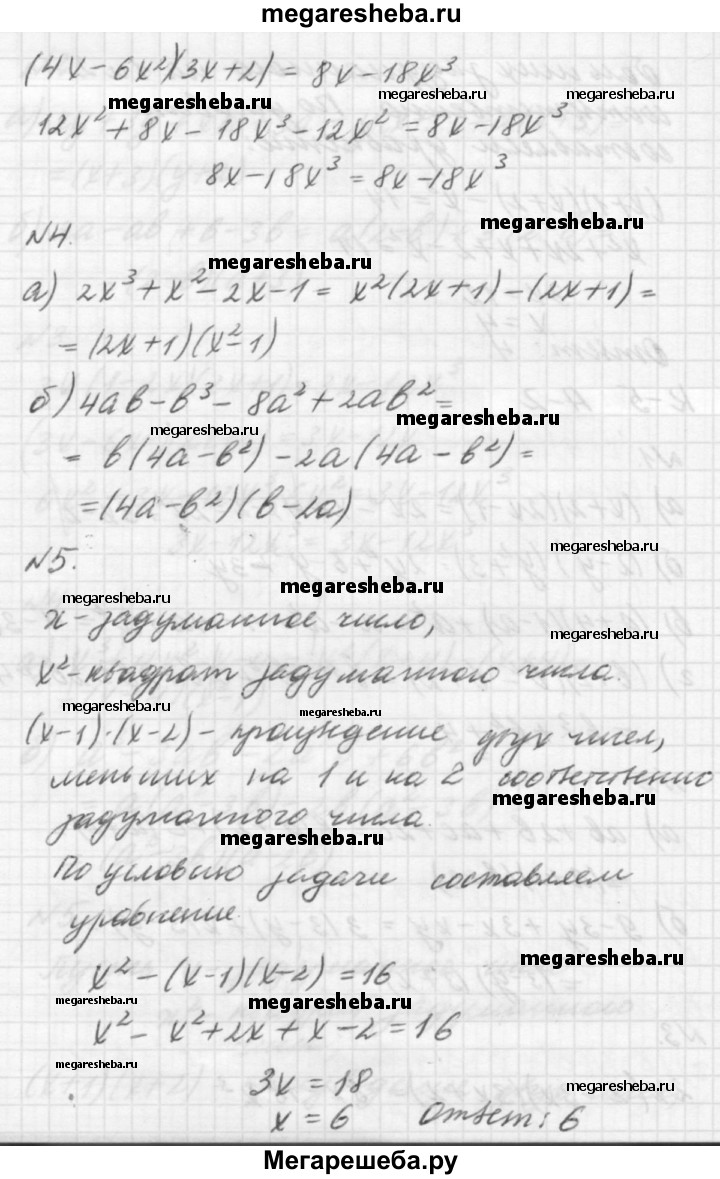 megaresheba.ru
(4x-6x²)(3x+2) = 8x-18x³
megaresheba.ru megaresheba.ru megaresheba.ru
12x²+8x-18x³-12x² = 8x-18x³
8x-18x³ = 8x-18x³
megaresheba.ru
N4.
megaresheba.ru
а) 2x³+x²-2x-1 = x²(2x+1)-(2x+1) =
= (2x+1)(x²-1)
б) 4ab-b³-8a²+2ab² =
megaresheba.ru megaresheba.ru
= b(4a-b²)-2a(4a-b²) =
= (4a-b²)(b-2a)
megaresheba.ru
N5.
megaresheba.ru
x - задуманное число,
megaresheba.ru
x² - квадрат задуманного числа.
megaresheba.ru megaresheba.ru
(x-1)·(x-2) - произведение двух чисел,
меньших на 1 и на 2 соответственно
megaresheba.ru
задуманного числа.
megaresheba.ru
По условию задачи составляем
уравнение
megaresheba.ru
x²-(x-1)(x-2) = 16
megaresheba.ru megaresheba.ru
x²-x²+2x+x-2 = 16
megaresheba.ru
3x = 18
megaresheba.ru
x = 6 Ответ: 6
Мегарешеба.ру